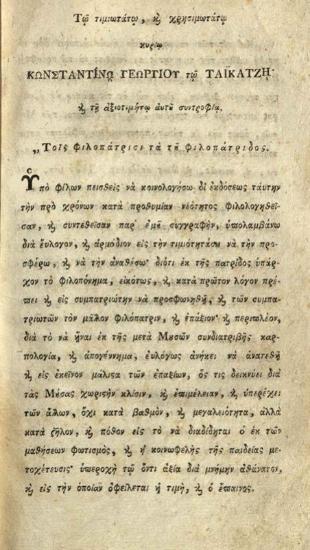 Τῷ τιμιωτάτῳ, ϗ χρησιμωτάτῳ
κυρίῳ
ΚΩΝΣΤΑΝΤΙΝΩ ΓΕΩΡΓΙΟΥ τῷ ΤΑΪΚΑΤΖΗ·
ϗ τῇ ἀξιοτιμήτῳ αὐτȣ͂ συντροφίᾳ.
„Τοῖς φιλοπάτρισι τὰ τȣ͂ φιλοπάτριδος.
Ὑπὸ φίλων πεισθεὶς νὰ κοινολογήσω δι' ἐκδόσεως ταύτην
τὴν πρὸ χρόνων κατὰ προθυμίαν νεότητος φιλολογηθεῖ-
σαν, ϗ συντεθεῖσαν παρ' ἐμȣ͂ συγγραφὴν, ὑπολαμβάνω
διὰ εὔλογον, ϗ ἁρμόδιον εἰς τὴν τιμιότητάσȣ νὰ τὴν προ-
σφέρω, ϗ νὰ τὴν ἀναθήσω· διότι ἐκ τῆς πατρίδος ὑπάρ-
χον τὸ φιλοπόνημα, εἰκότως, ϗ κατὰ πρῶτον λόγον πρέ-
πει ϗ εἰς συμπατριώτην νὰ προσφωνηθῇ, ϗ τῶν συμπα-
τριωτῶν τὸν μᾶλλον φιλόπατριν, ϗ ἐπάξιον· ϗ περιπλέον,
διὰ τὸ νὰ ἦναι ἐκ τῆς μετὰ Μȣσῶν συνδιατριβῆς καρ-
πολογία, ϗ ἀπογέννημα, εὐλόγως ἀνήκει νὰ ἀνατεθῇ
ϗ εἰς ἐκεῖνον μάλιϛα τῶν ἐπαξίων, ὅς τις δεικνύει διὰ
τὰς Μȣ́σας χωριϛὴν κλίσιν, ϗ ἐπιμέλειαν, ϗ ὑπερέχει
τῶν ἄλλων, ὄχι κατὰ βαθμὸν, ϗ μεγαλειότητα, ἀλλὰ
κατὰ ζῆλον, ϗ πόθον εἰς τὸ νὰ διαδίδηται ὁ ἐκ τῶν
μαθήσεων φωτισμὸς, ϗ ἡ κοινωφελὴς τῆς παιδείας με-
τοχέτευσις· ὑπεροχὴ τῷ ὄντι ἀξία διὰ μνήμην ἀθάνατον,
ϗ εἰς τὴν ὁποίαν ὀφείλεται ἡ τιμὴ, ϗ ὁ ἔπαινος.